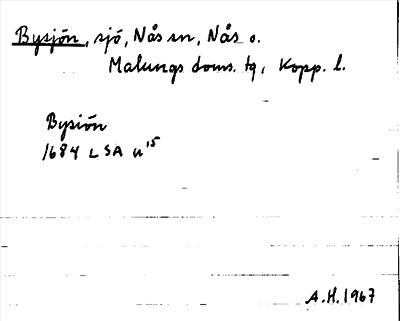 Bysjön, sjö, Nås sn, Nås o.
Malungs doms. tg, Kopp. l.
Bysiön
1684 LSA U¹⁵
A.H. 1967